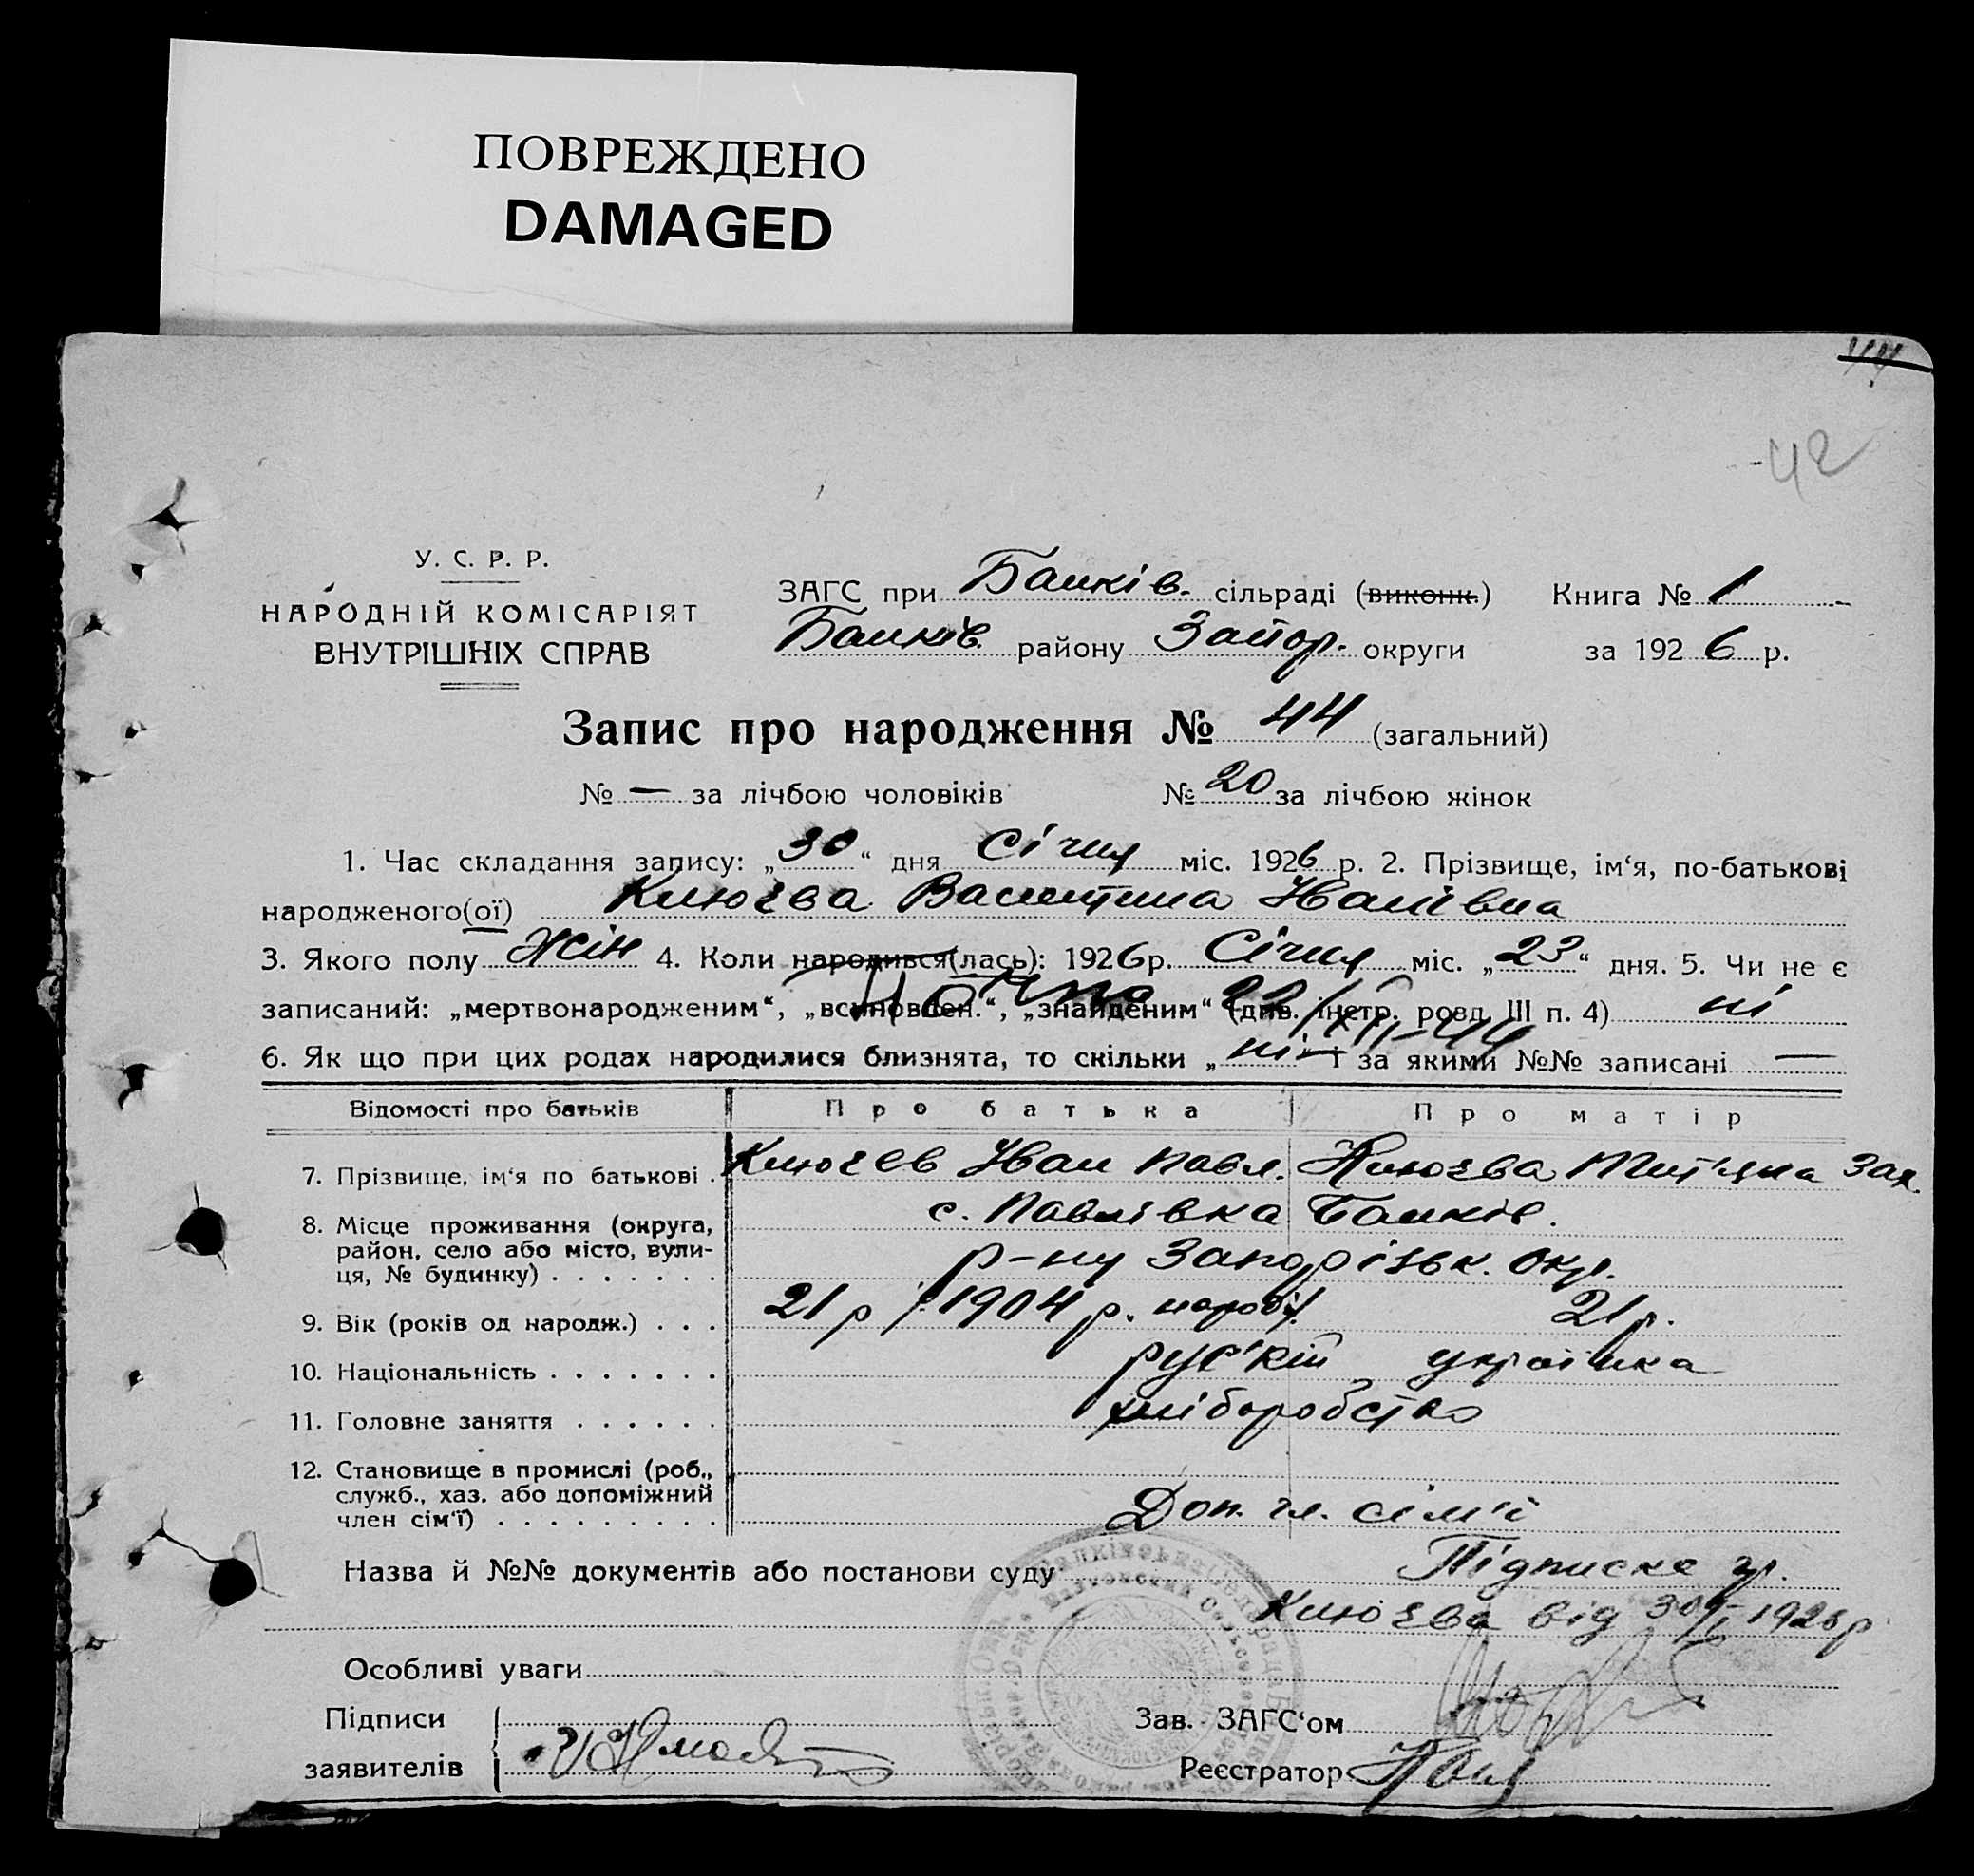 ПОВРЕЖДЕНО
DAMAGED
44
42
У. С. Р. Р.
НАРОДНІЙ КОМІСАРІЯТ
ВНУТРІШНІХ СПРАВ
ЗАГС при Балків. сільраді (виконк.) Книга № 1
Балків. району Запор. округи за 1926 р.
Запис про народження № 44 (загальний)
№ — за лічбою чоловіків № 20 за лічбою жінок
1. Час складання запису: „30“ дня Січня міс. 1926 р. 2. Прізвище, ім‘я, по-батькові
народженого(ої) Клюєва Валентина Іванівна
3. Якого полу жін 4. Коли народився(лась): 1926 р. Січня міс. „23“ дня. 5. Чи не є
записаний: „мертвонародженим“, „всиновлен.“, „знайденим“ (див. інстр. розд. III п. 4) ні
6. Як що при цих родах народилися близнята, то скільки „ні“ і за якими №№ записані —
Відомості про батьків Про батька Про матір
7. Прізвище, ім‘я по батькові . Клюєв Іван Павл. Клюєва Тит'яна Зах.
8. Місце проживання (округа, с. Павлівка Балків.
район, село або місто, вули- р-ну Запорізьк. Окр.
ця, № будинку) . . . . . . .
9. Вік (років од народж.) . . . 21 р /1904 р. народ/. 21 р.
10. Національність . . . . . . . рус'кий українка
11. Головне заняття . . . . . . хліборобство
12. Становище в промислі (роб.,
служб., хаз. або допоміжний
член сім‘ї) . . . . . . . . . Доп. чл. сім'ї
Назва й №№ документів або постанови суду Підписка гр.
Клюєва від 30/I 1926 р
Особливі уваги
Підписи
заявителів
Зав. ЗАГС‘ом
Реєстратор